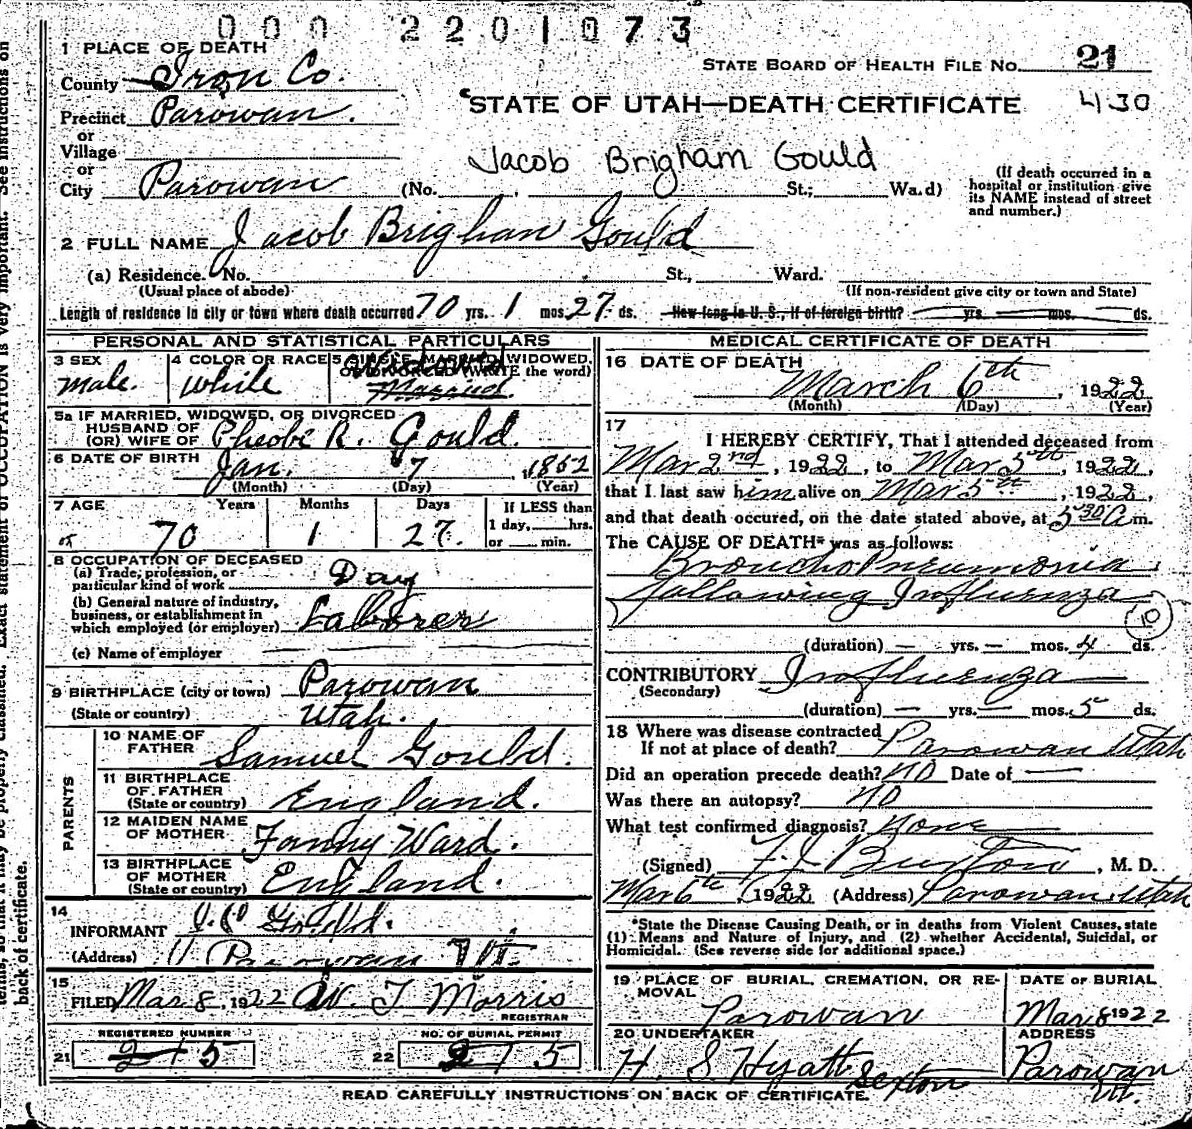 000 2201073
1 PLACE OF DEATH
County Iron Co.
STATE BOARD OF HEALTH FILE No. 21
Precinct Parowan.
STATE OF UTAH—DEATH CERTIFICATE 430
or
Village
or
Jacob Brigham Gould
City Parowan (No. , St.; Wa.d)
(If death occurred in a
hospital or institution give
its NAME instead of street
and number.)
2 FULL NAME Jacob Brigham Gould
(a) Residence. No. St., Ward.
(Usual place of abode) (If non-resident give city or town and State)
Length of residence in city or town where death occurred 70 yrs. 1 mos. 27 ds. How long in U. S., if of foreign birth? yrs. mos. ds.
PERSONAL AND STATISTICAL PARTICULARS
3 SEX
male.
4 COLOR OR RACE
White
5 SINGLE, MARRIED, WIDOWED,
OR DIVORCED (WRITE the word)
Married.
5a IF MARRIED, WIDOWED, OR DIVORCED
HUSBAND OF
(OR) WIFE OF Pheobe R. Gould.
6 DATE OF BIRTH Jan. 7, 1852
(Month) (Day) (Year)
7 AGE Years Months Days If LESS than
1 day, hrs.
or min.
70 1 27.
8 OCCUPATION OF DECEASED
(a) Trade, profession, or
particular kind of work Day
(b) General nature of industry,
business, or establishment in
which employed (or employer) Laborer
(c) Name of employer
9 BIRTHPLACE (city or town) Parowan
(State or country) Utah.
PARENTS
10 NAME OF
FATHER Samuel Gould.
11 BIRTHPLACE
OF FATHER
(State or country) England.
12 MAIDEN NAME
OF MOTHER Fanny Ward.
13 BIRTHPLACE
OF MOTHER
(State or country) England.
14
INFORMANT Gould.
(Address) Parowan Ut.
15
FILED Mar 8, 1922 W. T Morris
REGISTRAR
REGISTERED NUMBER NO. OF BURIAL PERMIT
21 5 22 5
MEDICAL CERTIFICATE OF DEATH
16 DATE OF DEATH
March 6th, 1922
(Month) (Day) (Year)
17
I HEREBY CERTIFY, That I attended deceased from
Mar 2nd, 1922, to Mar 5th, 1922,
that I last saw him alive on Mar 5th, 1922,
and that death occured, on the date stated above, at 5 30 A m.
The CAUSE OF DEATH* was as follows:
Broncho Pneumonia
following Influenza
10
(duration) — yrs. — mos. 4 ds.
CONTRIBUTORY Influenza
(Secondary)
(duration) — yrs. — mos. 5 ds.
18 Where was disease contracted
If not at place of death? Parowan Utah
Did an operation precede death? NO Date of —
Was there an autopsy? NO
What test confirmed diagnosis? None
(Signed) F. J. Burton, M. D.
Mar 6th, 1922 (Address) Parowan, Utah
*State the Disease Causing Death, or in deaths from Violent Causes, state
(1) Means and Nature of Injury, and (2) whether Accidental, Suicidal, or
Homicidal. (See reverse side for additional space.)
19 PLACE OF BURIAL, CREMATION, OR RE-
MOVAL
Parowan
DATE OF BURIAL
Mar 8 1922
20 UNDERTAKER
H. S. Hyatt Sexton
ADDRESS
Parowan
Ut.
READ CAREFULLY INSTRUCTIONS ON BACK OF CERTIFICATE.
back of certificate.